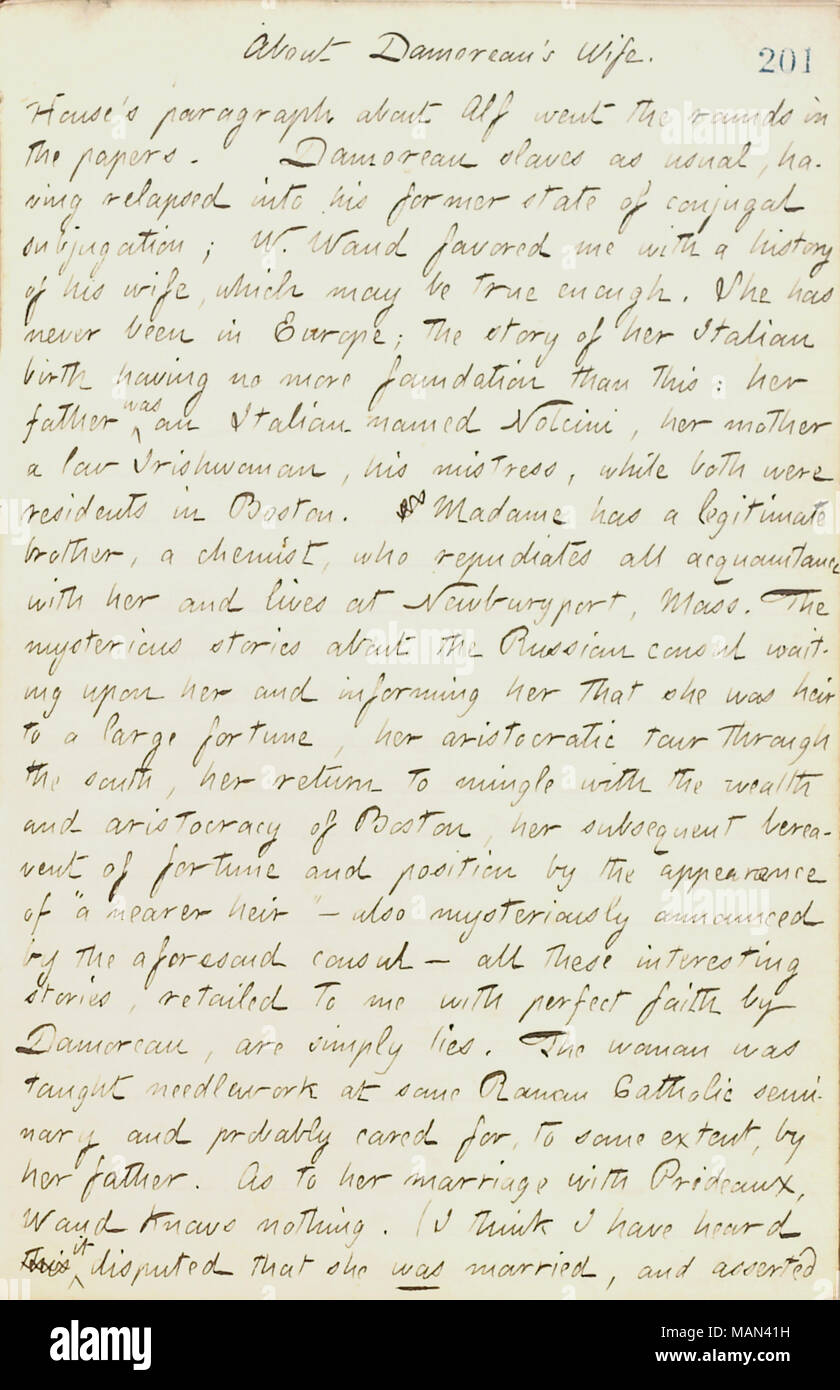 About Damoreau's Wife.
201
House's paragraph about Alf went the rounds in
the papers. Damoreau slaves as usual, ha-
ving relapsed into his former state of conjugal
subjugation; W. Waud favored me with a history
of his wife, which may be true enough. She has
never been in Europe; the story of her Italian
birth having no more foundation than this: her
father was an Italian named Nolcini, her mother
a low Irishwoman, his mistress, while both were
residents in Boston. Madame has a legitimate
brother, a chemist, who repudiates all acquaintance
with her and lives at Newburyport, Mass. The
mysterious stories about the Russian consul wait-
ing upon her and informing her that she was heir
to a large fortune, her aristocratic tour through
the south, her return to mingle with the wealth
and aristocracy of Boston, her subsequent berea-
vent of fortune and position by the appearance
of "a nearer heir" — also mysteriously announced
by the aforesaid consul — all these interesting
stories, retailed to me with perfect faith by
Damoreau, are simply lies. The woman was
taught needlework at some Roman Catholic semi-
nary and probably cared for, to some extent, by
her father. As to her marriage with Prideaux,
Waud knows nothing. (I think I have heard
this it disputed that she was married, and asserted
alamy
Image ID: MAN41H
www.alamy.com